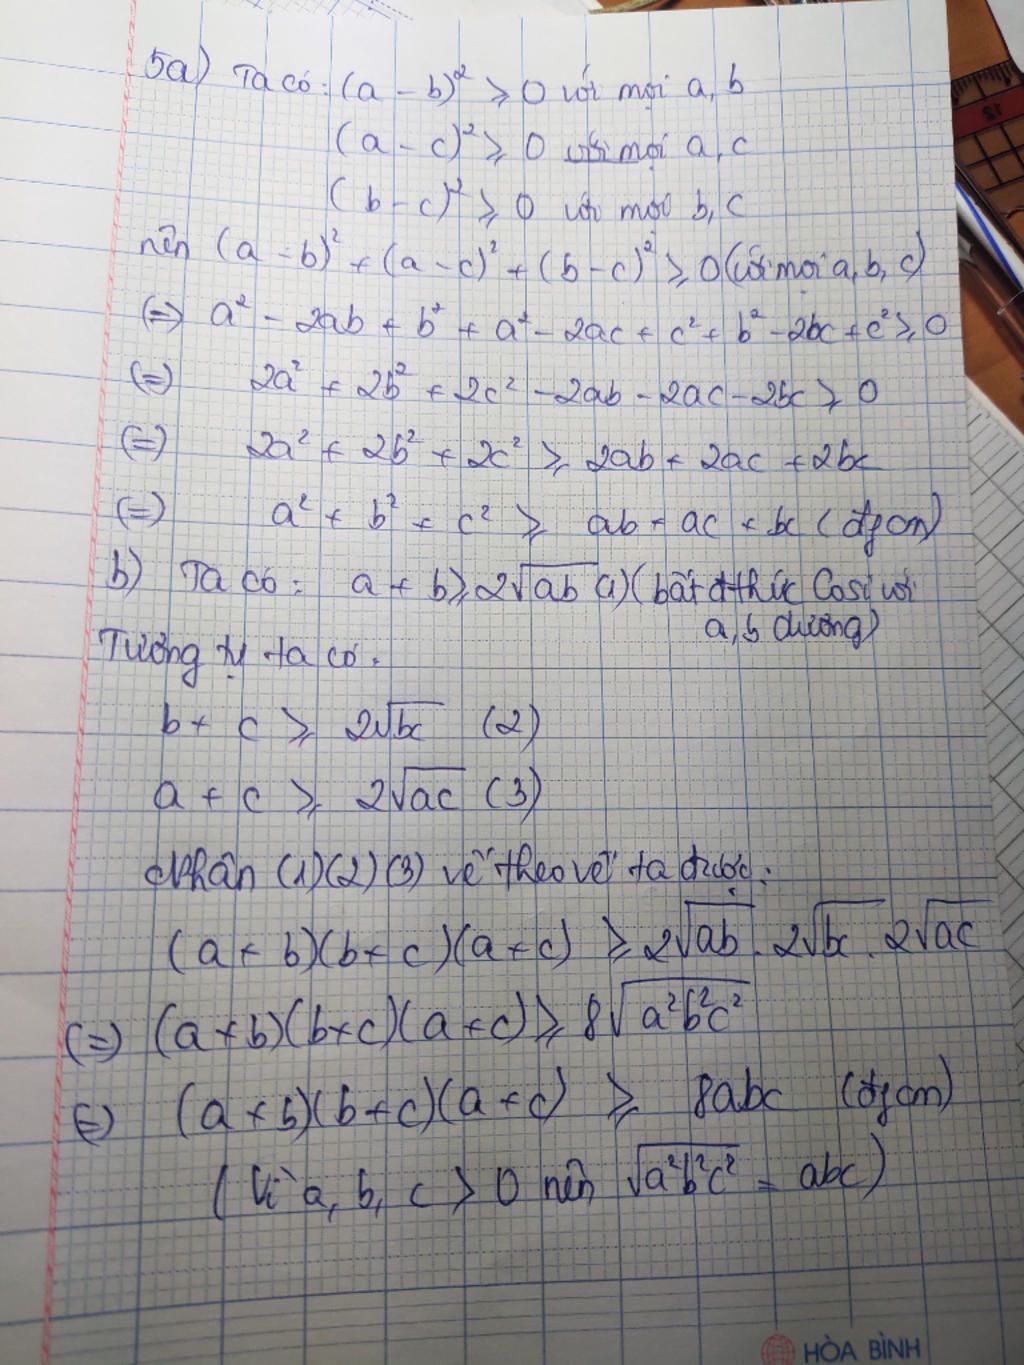 5a) Ta có: (a - b)² ⩾ 0 với mọi a, b
(a - c)² ⩾ 0 với mọi a, c
(b - c)² ⩾ 0 với mọi b, c
nên (a - b)² + (a - c)² + (b - c)² ⩾ 0 (với mọi a, b, c)
(=) a² - 2ab + b² + a² - 2ac + c² + b² - 2bc + c² ⩾ 0
(=) 2a² + 2b² + 2c² - 2ab - 2ac - 2bc ⩾ 0
(=) 2a² + 2b² + 2c² ⩾ 2ab + 2ac + 2bc
(=) a² + b² + c² ⩾ ab + ac + bc (đpcm)
b) Ta có: a + b ⩾ 2√ab (1) (bất đ thức Cosi với
a, b dương)
Tương tự ta có:
b + c ⩾ 2√bc (2)
a + c ⩾ 2√ac (3)
Nhân (1) (2) (3) vế theo vế ta được:
(a + b)(b + c)(a + c) ⩾ 2√ab . 2√bc . 2√ac
(=) (a + b)(b + c)(a + c) ⩾ 8√a²b²c²
(=) (a + b)(b + c)(a + c) ⩾ 8abc (đpcm)
(Vì a, b, c > 0 nên √a²b²c² = abc)
12
HÒA BÌNH